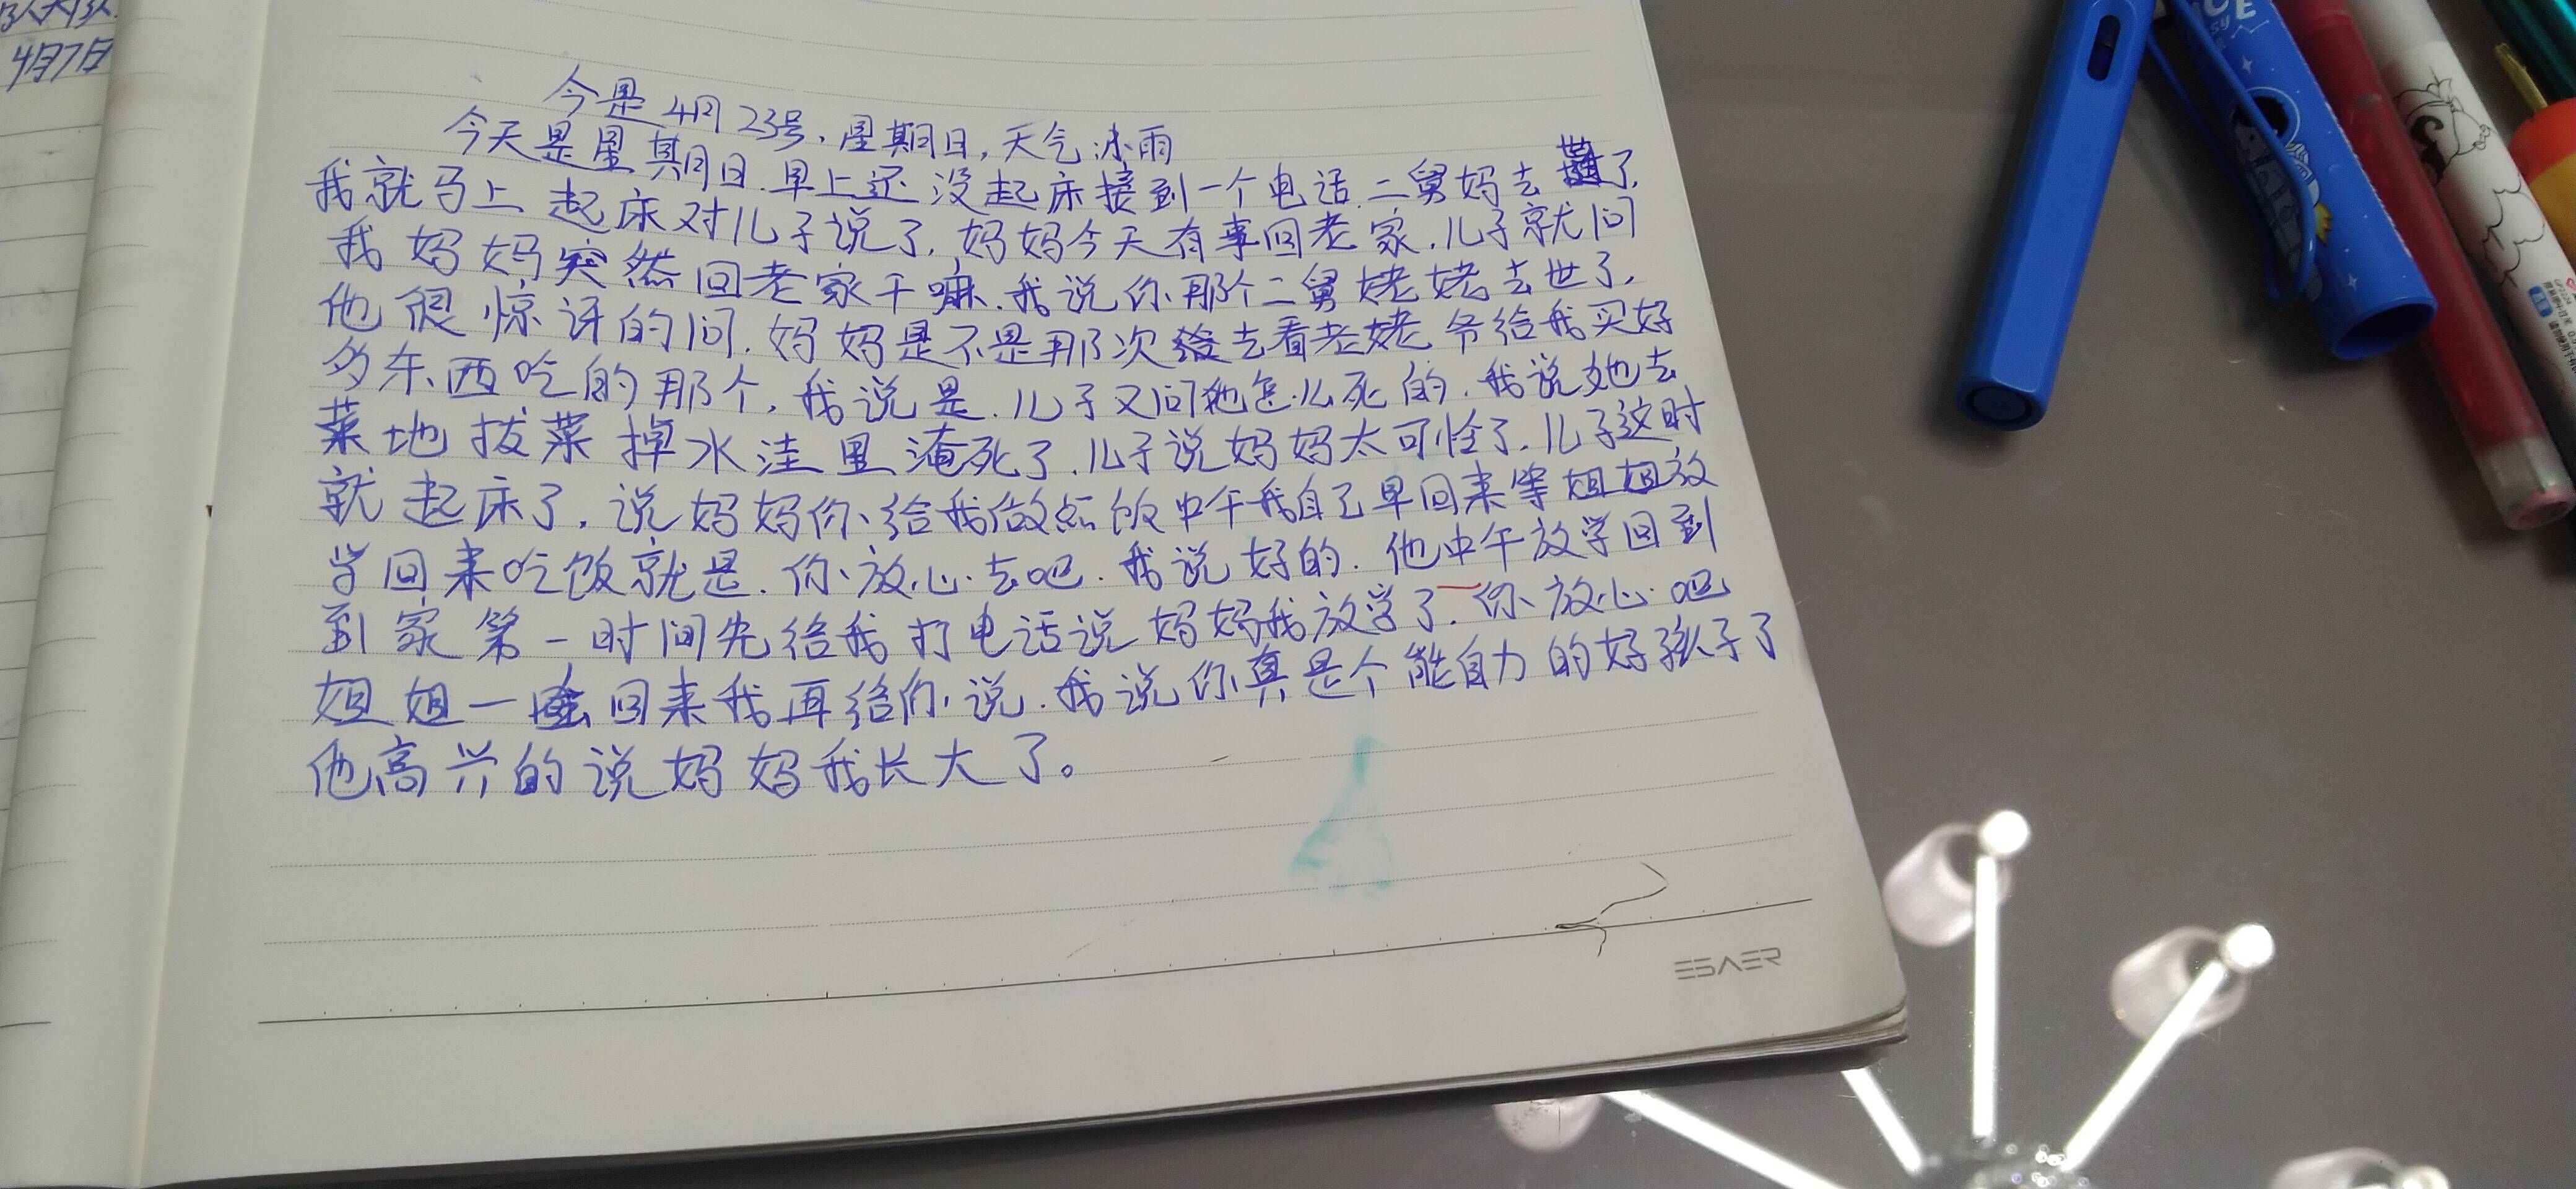 4月7日
今是4月23号,星期日,天气小雨
今天是星期日.早上还没起床接到一个电话.二舅妈去世了.
我就马上起床对儿子说了.妈妈今天有事回老家.儿子就问
我妈妈突然回老家干嘛.我说你那个二舅姥姥去世了.
他很惊讶的问.妈妈是不是那次去看老姥爷给我买好
多东西吃的那个,我说是.儿子又问她怎么死的.我说她去
菜地拔菜掉水洼里淹死了.儿子说妈妈太可怜了.儿子这时
就起床了,说妈妈你给我做点饭中午我自己早回来等姐姐放
学回来吃饭就是.你放心去吧.我说好的.他中午放学回到
到家第一时间先给我打电话说妈妈我放学了.你放心吧
姐姐一会回来我再给你说.我说你真是个能自力的好孩子了
他高兴的说妈妈我长大了。
ESAER